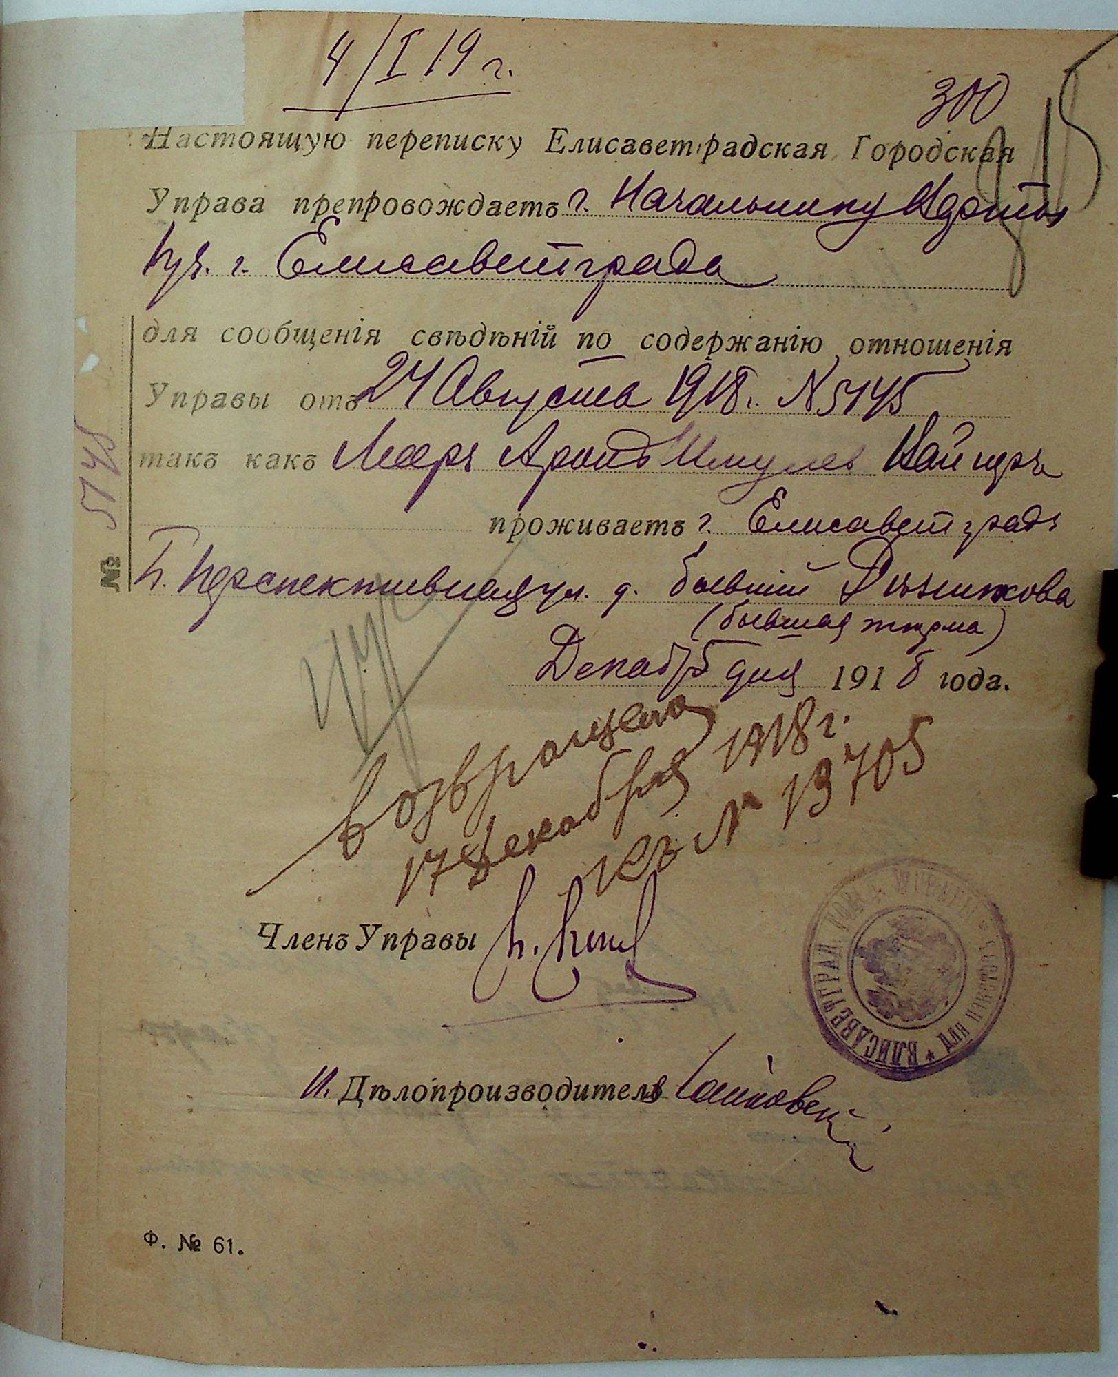 4/I 19 г.
300
Настоящую переписку Елисаветградская Городская
Управа препровождаетъ г. Начальнику
г. Елисаветграда
для сообщенія свѣдѣній по содержанію отношенія
Управы отъ 24 Августа 1918 г. № 5745
такъ какъ Мееръ Аронъ
проживаетъ г. Елисаветградъ
Б. Перспективная ул. д. бывшій
(бывшая тюрма)
Декабря дня 1918 года.
№ 5745
Возвращено
17 Декабря 1918 г.
№ 13705
Членъ Управы
И. Дѣлопроизводитель
ЕЛИСАВЕТГРАД. ГОРОД. УПРАВА
Ф. № 61.